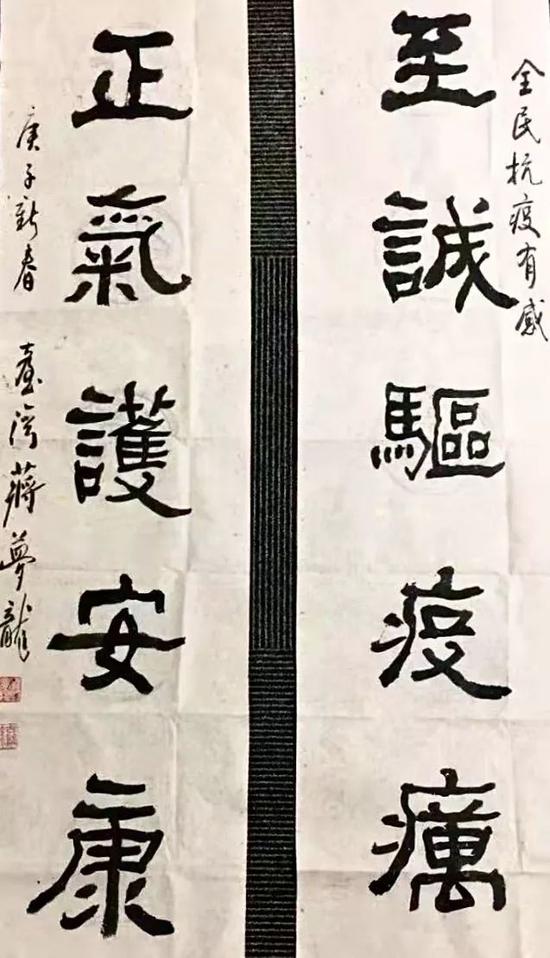 全民抗疫有感
至誠驅疫癘
正氣護安康
庚子新春
臺灣蔣夢龍